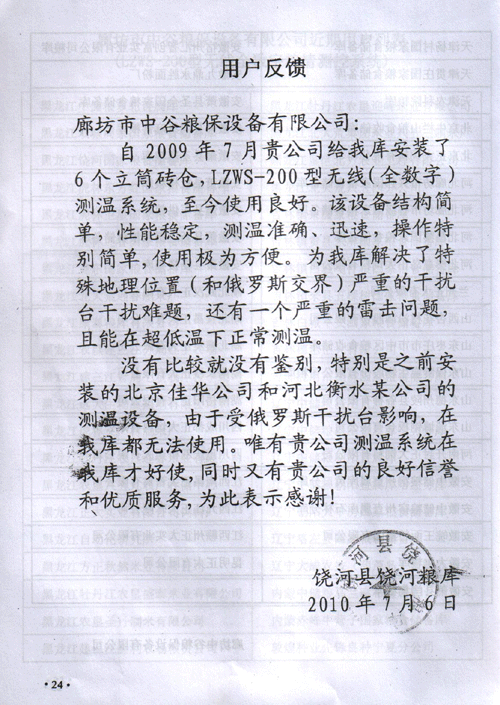 用户反馈
廊坊市中谷粮保设备有限公司：
自 2009 年 7 月贵公司给我库安装了
6 个立筒砖仓，LZWS-200 型无线（全数字）
测温系统，至今使用良好。该设备结构简
单，性能稳定，测温准确、迅速，操作特
别简单，使用极为方便。为我库解决了特
殊地理位置（和俄罗斯交界）严重的干扰
台干扰难题，还有一个严重的雷击问题，
且能在超低温下正常测温。
没有比较就没有鉴别，特别是之前安
装的北京佳华公司和河北衡水某公司的
测温设备，由于受俄罗斯干扰台影响，在
我库都无法使用。唯有贵公司测温系统在
我库才好使，同时又有贵公司的良好信誉
和优质服务，为此表示感谢！
河县饶
饶河县饶河粮库
2010 年 7 月 6 日
·24·